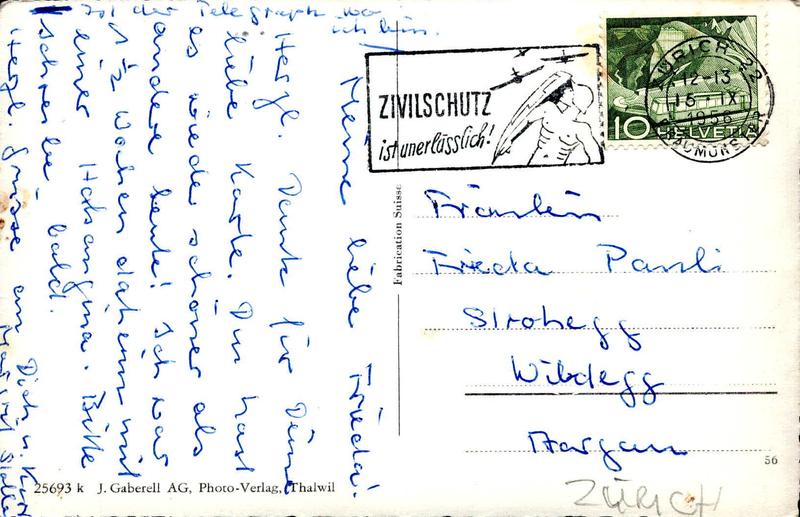 Meine liebe Frieda!
Herzl. Dank für Deine
liebe Karte. Du hast
es wieder schöner als
andere Leute! Ich war
1½ Wochen daheim mit
einer Halsangina. Bitte
schreibe bald.
Herzl Grüsse an Dich u. Kurt
ist der Telegraph wo
ich bin.
ZIVILSCHUTZ
ist unerlässlich!
ZÜRICH 22
12-13
15. IX
1956
FRAUMÜNSTER
10 HELVETIA
Fabrication Suisse
Fräulein
Frieda Pauli
Strohegg
Wildegg
Aargau
56
25693 k J. Gaberell AG, Photo-Verlag, Thalwil
ZÜRICH